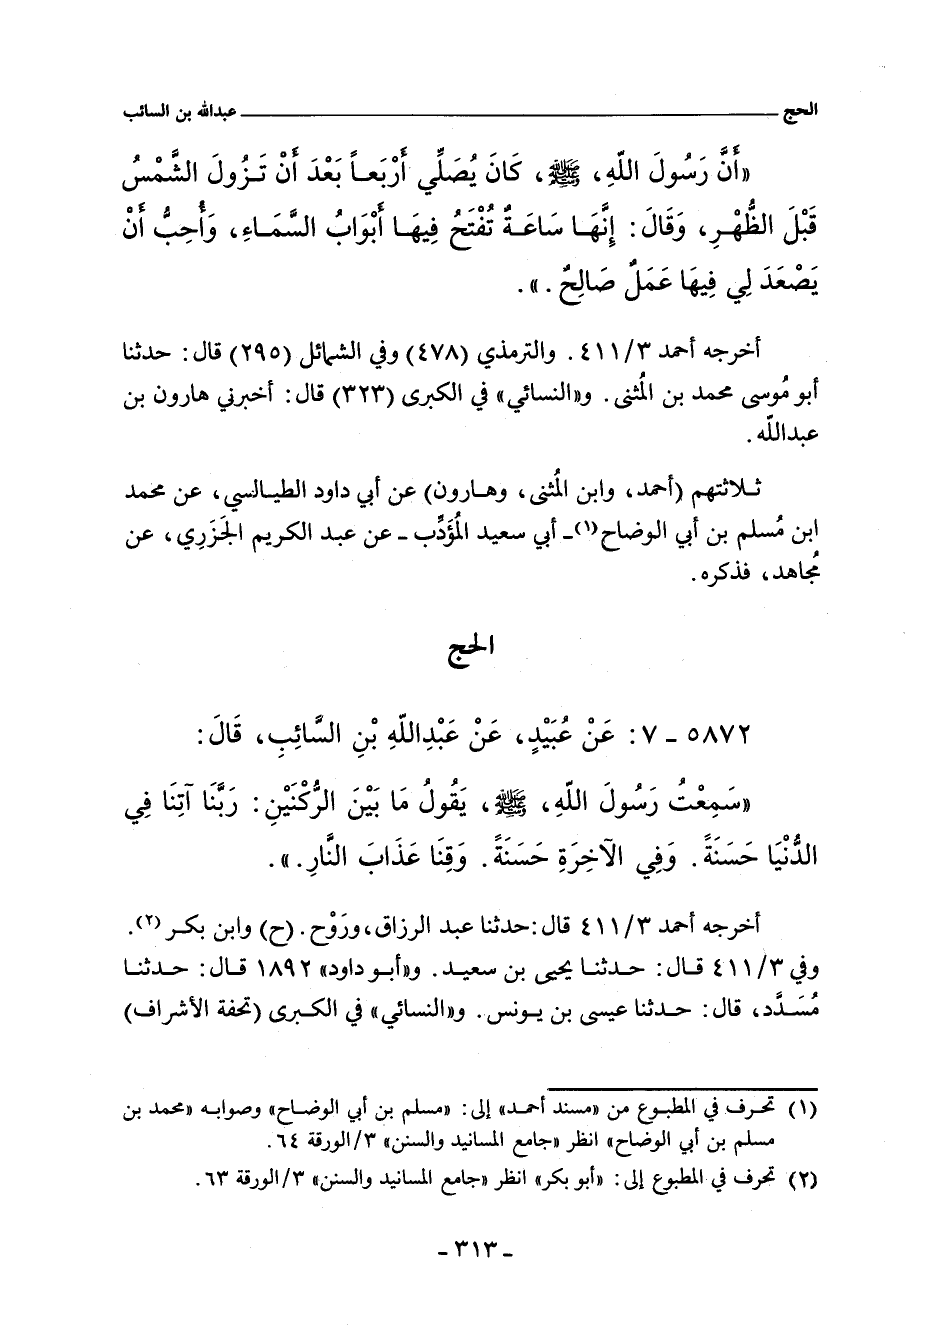 الحج ــــــــــ عبدالله بن السائب
«أَنَّ رَسُولَ اللّهِ، ﷺ، كَانَ يُصَلِّي أَرْبَعاً بَعْدَ أَنْ تَزُولَ الشَّمْسُ
قَبْلَ الظُّهْرِ، وَقَالَ: إِنَّهَا سَاعَةٌ تُفْتَحُ فِيهَا أَبْوَابُ السَّمَاءِ، وَأُحِبُّ أَنْ
يَصْعَدَ لِي فِيهَا عَمَلٌ صَالِحٌ.».
أخرجه أحمد ٤١١/٣. والترمذي (٤٧٨) وفي الشمائل (٢٩٥) قال: حدثنا
أبو مُوسى محمد بن المُثنى. و«النسائي» في الكبرى (٣٢٣) قال: أخبرني هارون بن
عبداللّه.
ثلاثتهم (أحمد، وابن المُثنى، وهارون) عن أبي داود الطيالسي، عن محمد
ابن مُسلم بن أبي الوضاح(١)ـ أبي سعيد المُؤَدِّب ـ عن عبد الكريم الجَزَرِي، عن
مُجاهد، فذكره.
الحج
٥٨٧٢ ـ ٧: عَنْ عُبَيْدٍ، عَنْ عَبْدِاللّهِ بْنِ السَّائِبِ، قَالَ:
«سَمِعْتُ رَسُولَ اللّهِ، ﷺ، يَقُولُ مَا بَيْنَ الرُّكْنَيْنِ: رَبَّنَا آتِنَا فِي
الدُّنْيَا حَسَنَةً. وَفِي الآخِرَةِ حَسَنَةً. وَقِنَا عَذَابَ النَّارِ.».
أخرجه أحمد ٤١١/٣ قال: حدثنا عبد الرزاق، ورَوْح. (ح) وابن بكر(٢).
وفي ٤١١/٣ قال: حدثنا يحيى بن سعيد. و«أبو داود» ١٨٩٢ قال: حدثنا
مُسَدَّد، قال: حدثنا عيسى بن يونس. و«النسائي» في الكبرى (تحفة الأشراف)
(١) تحرف في المطبوع من «مسند أحمد» إلى: «مسلم بن أبي الوضاح» وصوابه «محمد بن
مسلم بن أبي الوضاح» انظر «جامع المسانيد والسنن» ٣/الورقة ٦٤.
(٢) تحرف في المطبوع إلى: «أبو بكر» انظر «جامع المسانيد والسنن» ٣/الورقة ٦٣.
ـ ٣١٣ ـ